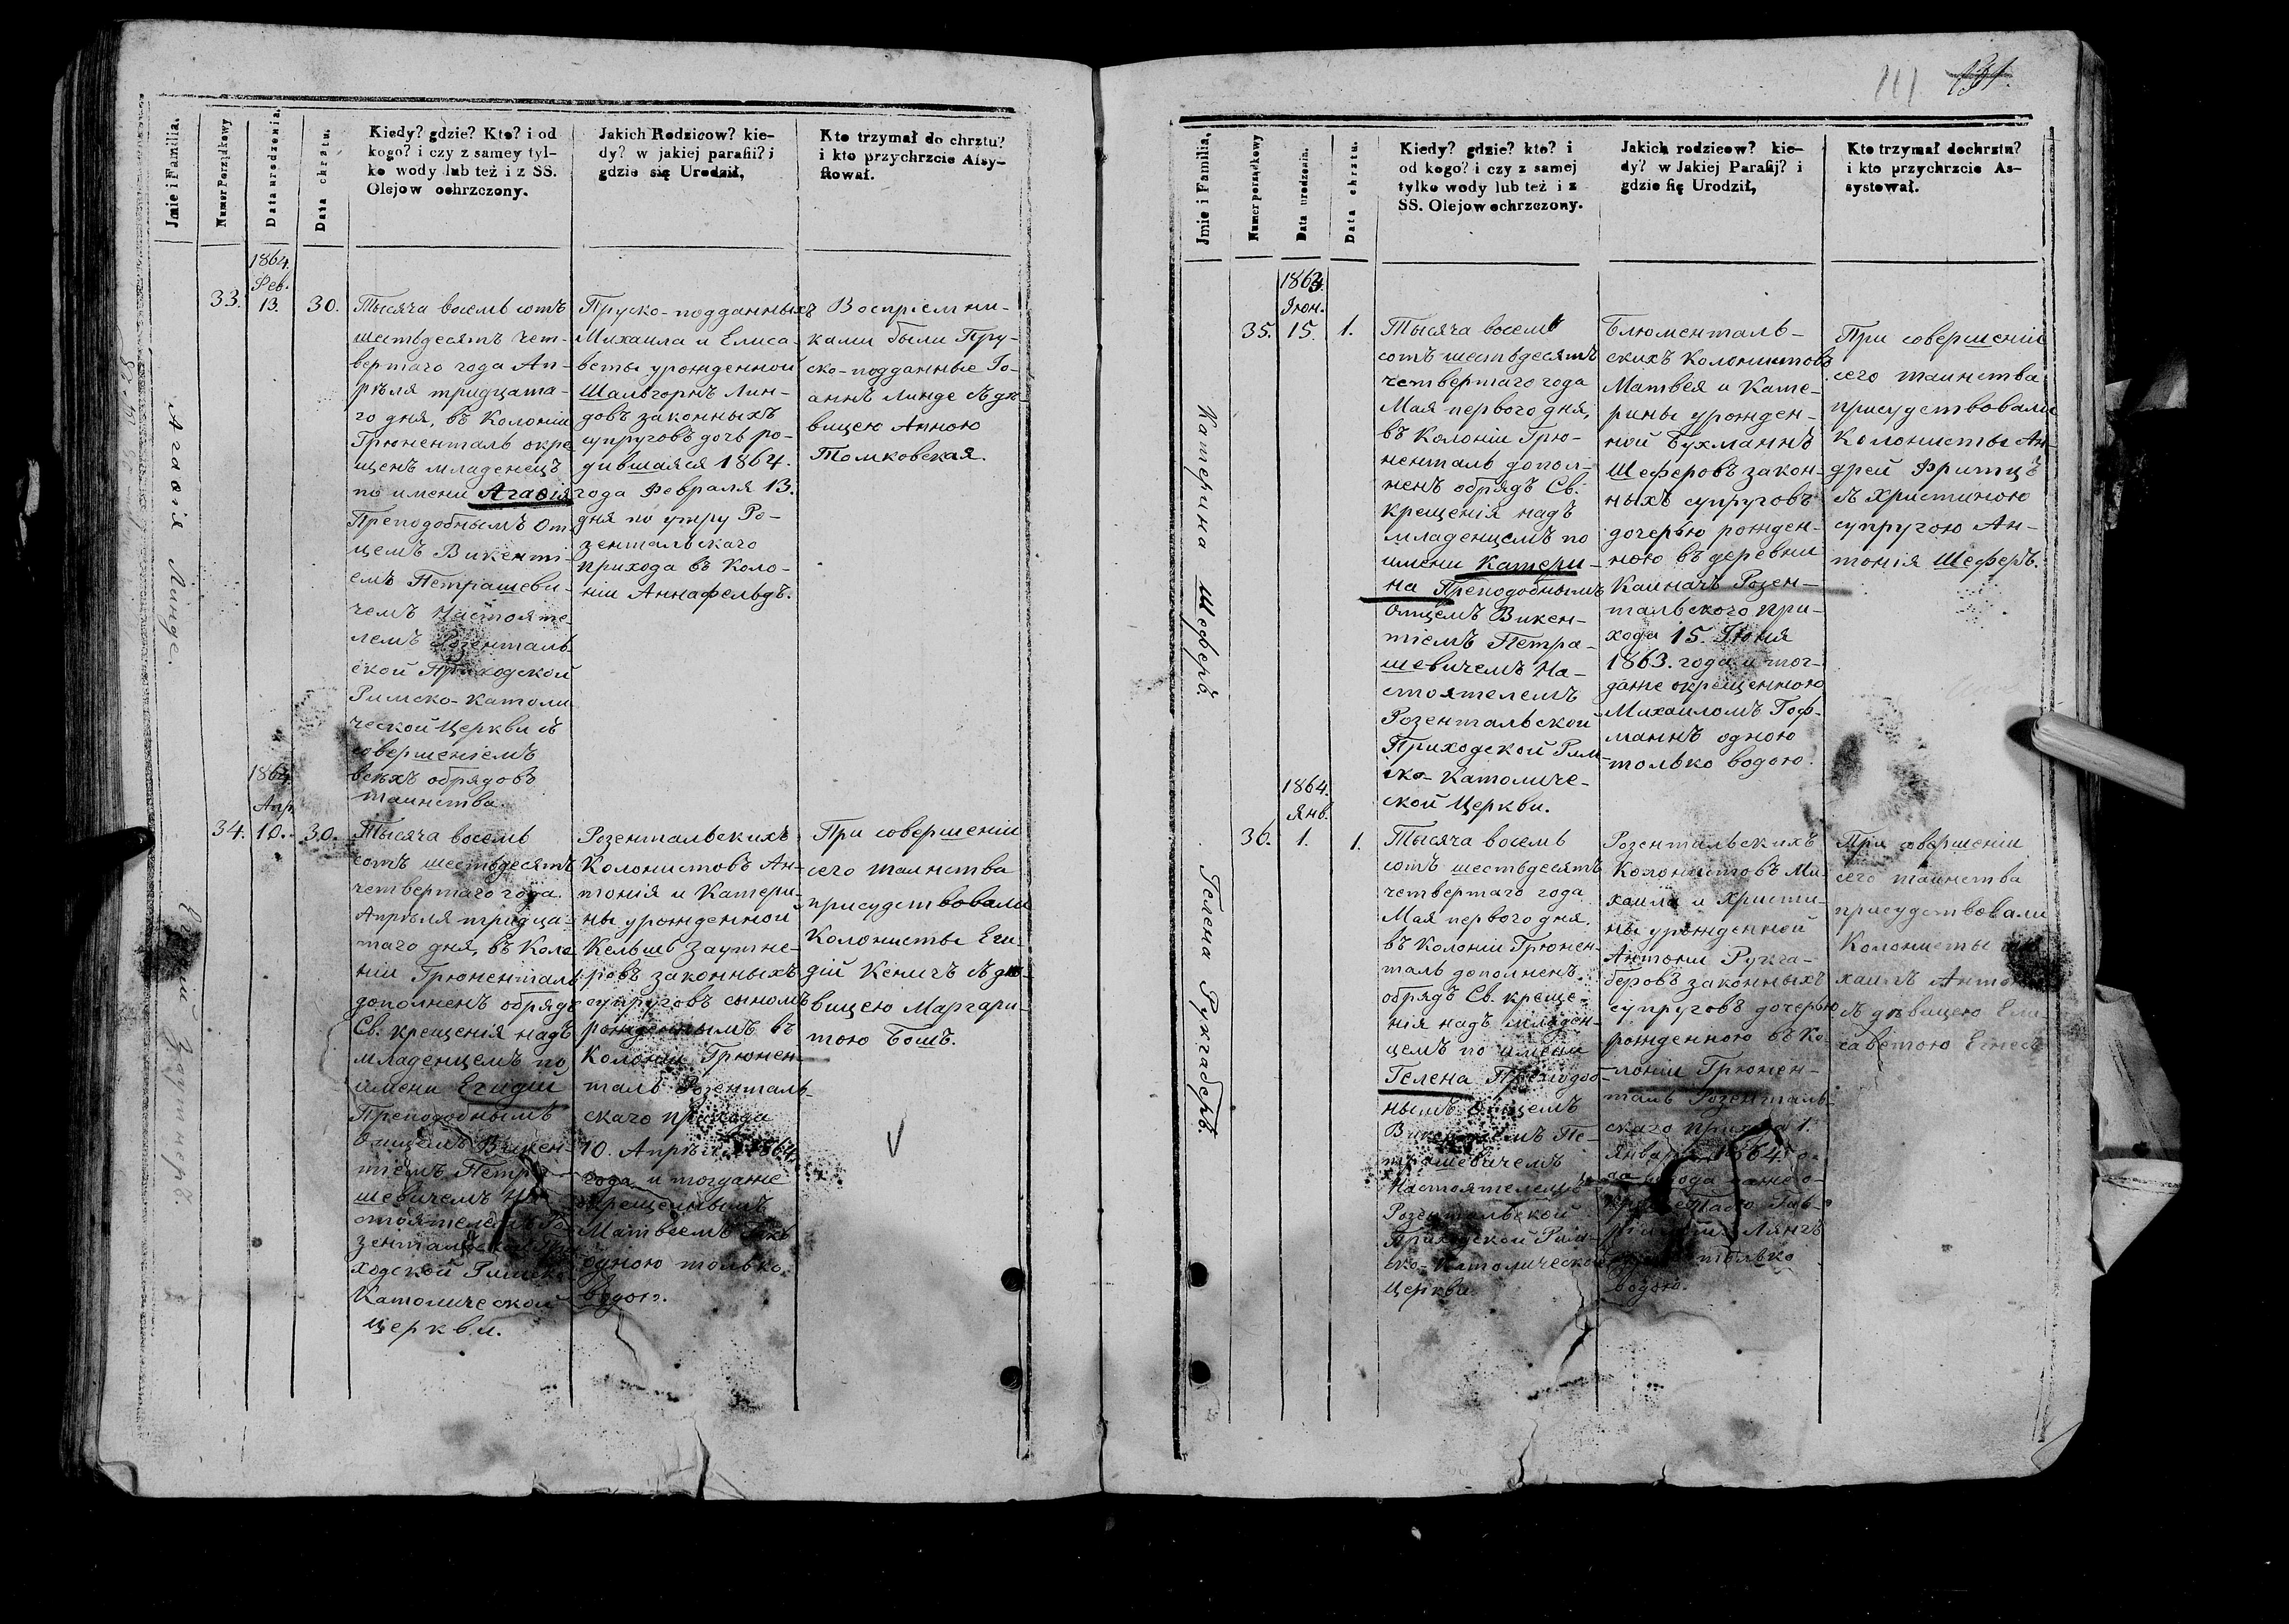 Jmie i Familia.
Numer Porządkowy
Data urodzenia.
Data chrztu.
Kiedy? gdzie? Kto? i od
kogo? i czy z samey tyl-
ko wody lub też i z SS.
Olejow ochrzczony.
Jakich Rodzicow? kie-
dy? w jakiej parafii? i
gdzie się Urodził,
Kto trzymał do chrztu?
i kto przychrzcie Assy-
stował.
Агаѳія Линде.
33.
1864.
Фев.
13.
30.
Тысяча восемь сотъ
шестьдесятъ чет-
вертаго года Ап-
рѣля тридцата-
го дня, въ Колоніи
Грюненталь окре
щенъ младенецъ
по имени Агаѳія
Преподобнымъ От-
цемъ Викенті-
емъ Петрашеви-
чемъ Настояте
лемъ Розенталь-
ской Приходской
Римско-Католи
ческой Церкви съ
совершеніемъ
всѣхъ обрядовъ
таинства.
Пруско-подданныхъ
Михаила и Елиса-
веты урожденной
Шальгорнъ Лин-
довъ законныхъ
супруговъ дочь ро-
дившаяся 1864.
года Февраля 13.
дня по утру Ро-
зентальскаго
прихода въ Коло-
ніи Аннафельдъ.
Воспріемни-
ками были Пру-
ско-подданные Іо-
аннъ Линде съ дѣ-
вицею Анною
Томковская.
Заутнеръ.
34.
1864
Апр
10.
30.
Тысяча восемь
сотъ шестьдесятъ
четвертаго года
Апрѣля тридца-
таго дня, въ Коло
ніи Грюненталь
дополненъ обрядъ
Св. крещенія надъ
младенцемъ по
имени Егидій
Преподобнымъ
Отцемъ Викен-
тіемъ Петра-
шевичемъ На-
стоятелемъ Ро-
зентальской При-
ходской Римско
Католической
Церкви.
Розентальскихъ
Колонистовъ Ан-
тонія и Катери-
ны урожденной
Кельшъ Заутне-
ровъ законныхъ
супруговъ сыномъ
рожденнымъ въ
Колоніи Грюнен-
таль Розенталь-
скаго прихода
10. Апрѣля 1864
года и тогдаже
окрещеннымъ
Матвеемъ
одною только
водою.
При совершеніи
сего таинства
присудствовали
Колонисты Еги-
дій Кеничъ съ дѣ-
вицею Маргари-
тою Бошъ.
111
131.
Jmie i Familia.
Numer porządkowy
Data urodzenia.
Data chrztu.
Kiedy? gdzie? kto? i
od kogo? i czy z samej
tylko wody lub też i z
SS. Olejow ochrzczony.
Jakich rodzicow? kie-
dy? w Jakiej Parafij? i
gdzie się Urodził,
Kto trzymał dochrztu?
i kto przychrzcie As-
systował.
Катерина Шеферъ.
35.
1863.
Іюн.
15.
1.
Тысяча восемь
сотъ шестьдесятъ
четвертаго года
Мая перваго дня,
въ Колоніи Грю-
ненталь допол-
ненъ обрядъ Св.
крещенія надъ
младенцемъ по
имени Катери-
на Преподобнымъ
Отцемъ Викен-
тіемъ Петра-
шевичемъ На-
стоятелемъ
Розентальской
Приходской Рим
ско-Католиче-
ской Церкви.
Блюменталь-
скихъ Колонистовъ
Матвея и Кате-
рины урожден-
ной Бухманнъ
Шеферовъ закон-
ныхъ супруговъ
дочерью рожден-
ною въ деревни
Каиначъ Розен-
тальского при-
хода 15. Іюня
1863. года и тог-
даже окрещенною
Михаиломъ Гоф-
маннъ одною
только водою.
При совершеніи
сего таинства
присудствовали
Колонисты Ан-
дрей Фритцъ
съ Христиною
супругою Ан-
тонія Шеферъ.
Гелена Рукгаберъ.
36.
1864.
Янв.
1.
1.
Тысяча восемь
сотъ шестьдесятъ
четвертаго года
Мая перваго дня,
въ Колоніи Грюнен-
таль дополненъ
обрядъ Св. креще-
нія надъ младен-
цемъ по имени
Гелена Преподоб-
нымъ Отцемъ
Викентіемъ Пе-
трашевичемъ
Настоятелемъ
Розентальской
Приходской Рим-
ско-Католической
Церкви.
Розентальскихъ
Колонистовъ Ми-
хаила и Христи-
ны урожденной
Антони Рукга-
беровъ законныхъ
супруговъ дочерью
рожденною въ Ко-
лоніи Грюнен-
таль Розенталь-
скаго прихода 1.
Января 1864
Лянгъ
только
водою.
При совершеніи
сего таинства
присудствовали
Колонисты Ми-
хаилъ Антони
съ дѣвицею Ели-
саветою